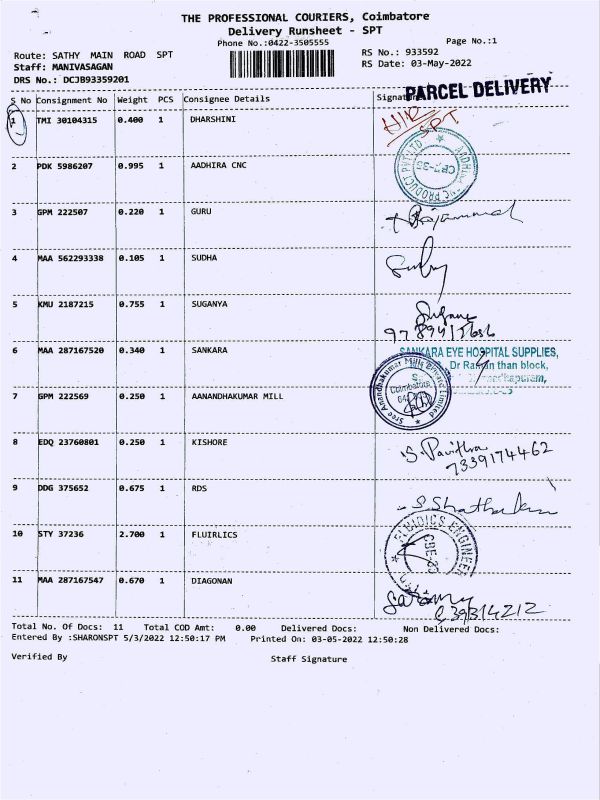 THE PROFESSIONAL COURIERS, Coimbatore
Delivery Runsheet - SPT
Phone No.:0422-3505555
Page No.:1
Route: SATHY MAIN ROAD SPT
RS No.: 933592
Staff: MANIVASAGAN
RS Date: 03-May-2022
DRS No.: DCJB93359201
PARCEL DELIVERY
S No Consignment No Weight PCS Consignee Details
1 TMI 30104315 0.400 1 DHARSHINI
SPT
2 PDK 5986207 0.995 1 AADHIRA CNC
3 GPM 222507 0.220 1 GURU
Rajammal
4 MAA 562293338 0.105 1 SUDHA
5 KMU 2187215 0.755 1 SUGANYA
6 MAA 287167520 0.340 1 SANKARA
SANKARA EYE HOSPITAL SUPPLIES,
than block,
7 GPM 222569 0.250 1 AANANDHAKUMAR MILL
Sree Anandhakumar Mills Private Limited
Coimbatore
8 EDQ 23760801 0.250 1 KISHORE
S. Pavithra
7339174462
9 DDG 375652 0.675 1 RDS
10 STY 37236 2.700 1 FLUIRLICS
FLUIDICS ENGINEER
11 MAA 287167547 0.670 1 DIAGONAN
Total No. Of Docs: 11 Total COD Amt: 0.00 Delivered Docs: Non Delivered Docs:
Entered By :SHARONSPT 5/3/2022 12:50:17 PM Printed On: 03-05-2022 12:50:28
Verified By Staff Signature